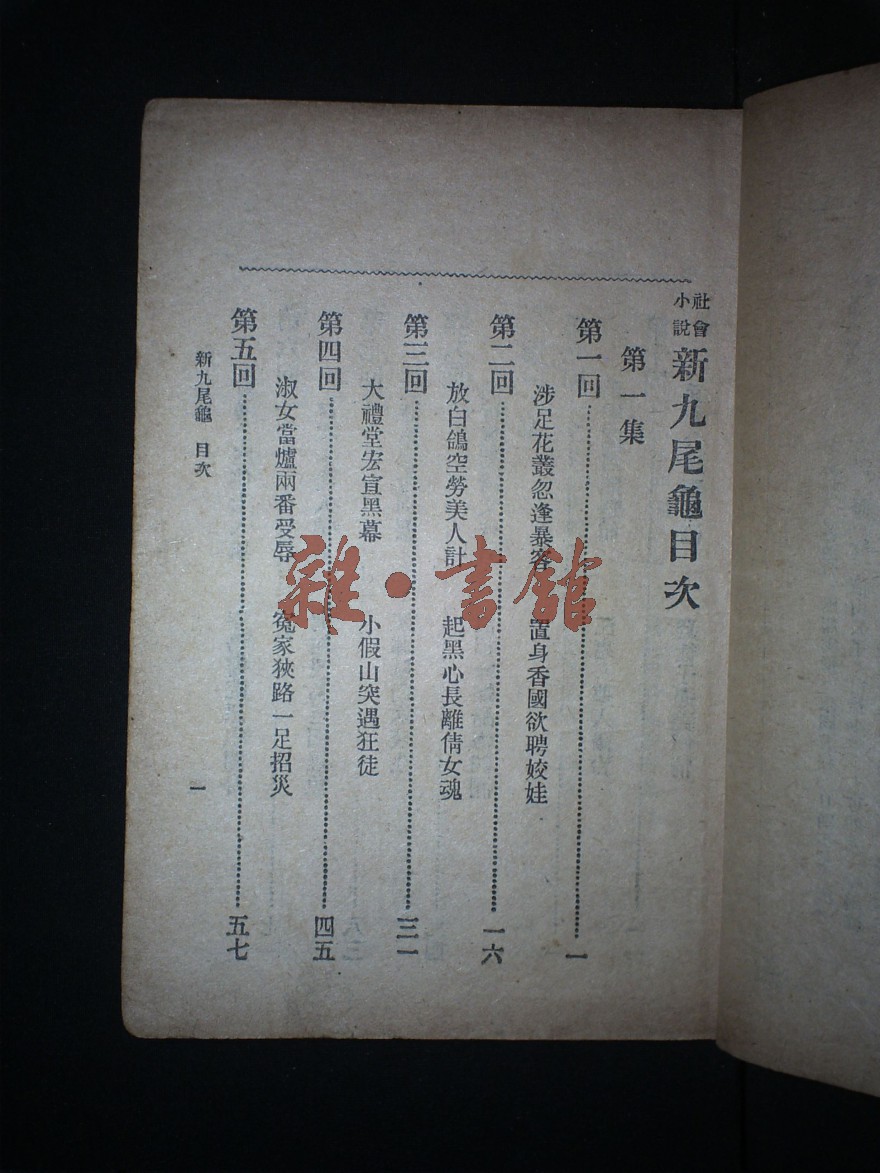 社會小說 新九尾龜目次
第一集
第一回 一
涉足花叢忽逢暴客 置身香國欲聘姣娃
第二回 一六
放白鴿空勞美人計 起黑心長離倩女魂
第三回 三一
大禮堂宏宣黑幕 小假山突遇狂徒
第四回 四五
淑女當爐兩番受辱 冤家狹路一足招災
第五回 五七
新九尾龜 目次
一
雜·書館